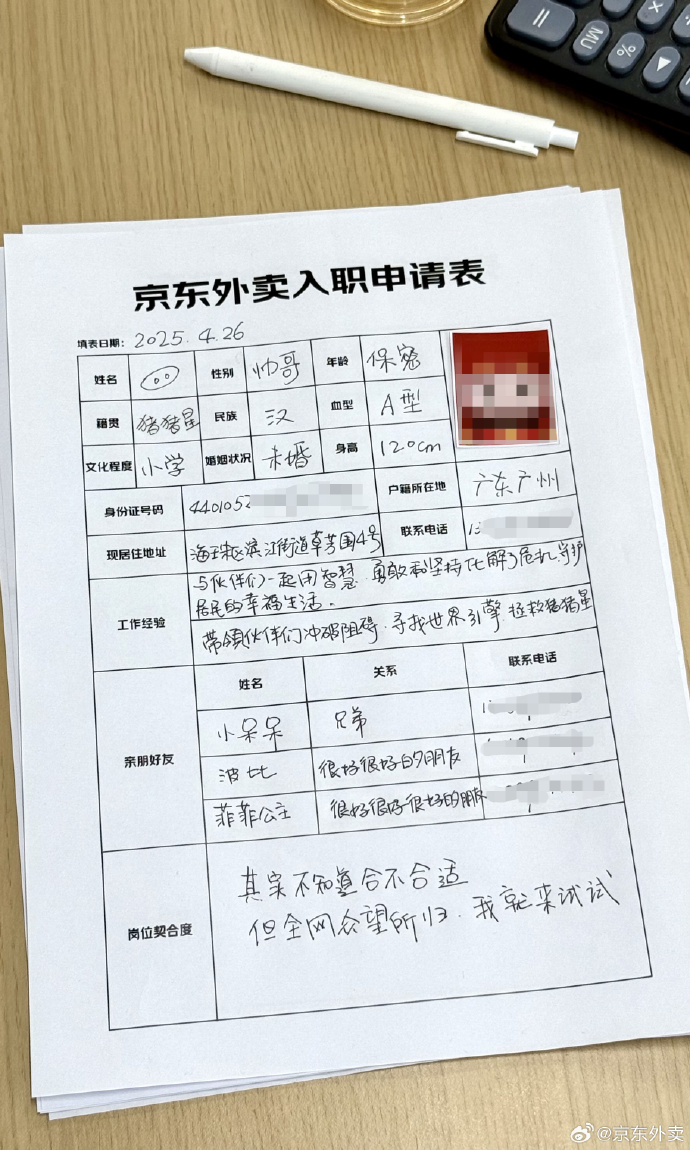 MU
%
京东外卖入职申请表
填表日期: 2025.4.26
姓名 性别 帅哥 年龄 保密
籍贯 猪猪星 民族 汉 血型 A型
文化程度 小学 婚姻状况 未婚 身高 120cm
身份证号码 4401052 户籍所在地 广东广州
现居住地址 海珠区滨江街道草芳围4号 联系电话 13
工作经验 与伙伴们一起用智慧、勇敢和坚持化解了危机,守护
居民的幸福生活。
带领伙伴们冲破阻碍、寻找世界引擎 拯救猪猪星
亲朋好友 姓名 关系 联系电话
小呆呆 兄弟
波比 很好很好的朋友
菲菲公主 很好很好很好的朋友
岗位契合度 其实不知道合不合适
但全网众望所归、我就来试试
@京东外卖